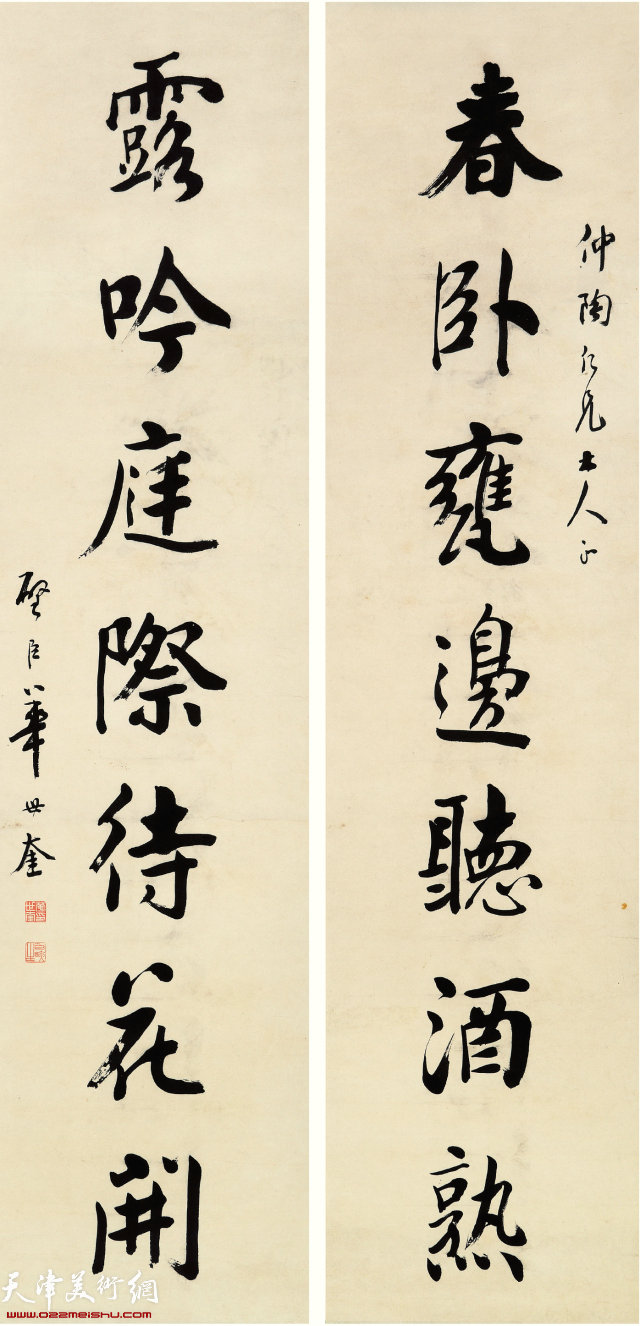 仲陶仁兄大人正
春卧甕邊聽酒熟
露吟庭際待花開
璧臣華世奎
天津美術網
www.022meishu.com